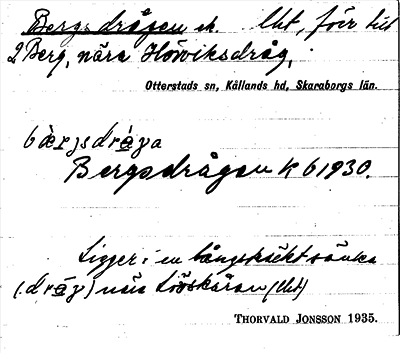 Bergsdrågen sk. Utt, förr till
2 Berg, nära Höwiksdråg.
Otterstads sn, Kållands hd, Skaraborgs län.
bærjsdrága
Bergsdrågen K 6 1930.
Ligger i en långsträckt sänka
(dråg) nära Lövskären (Utt)
THORVALD JONSSON 1935.